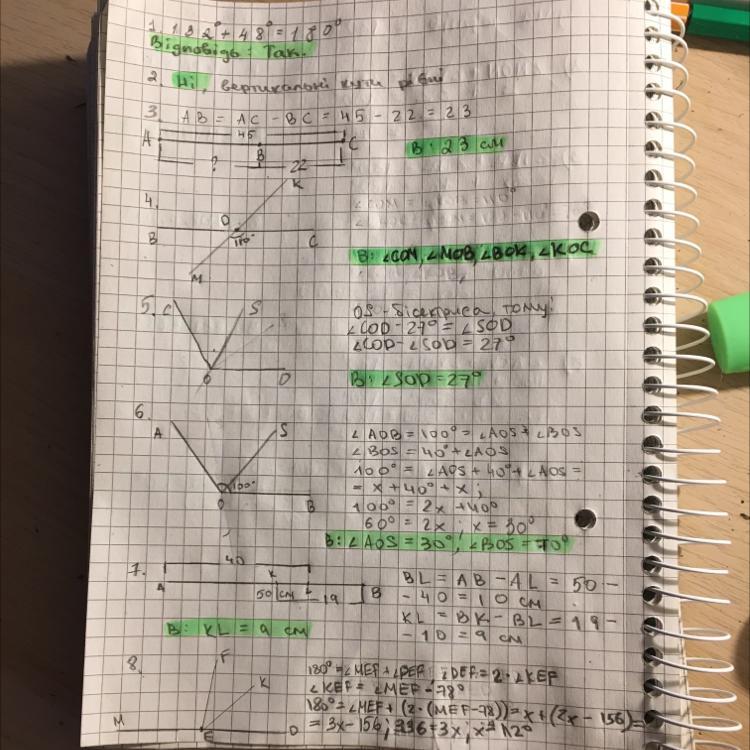 1. 132° + 48° = 180°
Відповідь: Так.
2. Ні, вертикальні кути рівні
3. AB = AC - BC = 45 - 22 = 23
A 45 C
B
? 22
В: 23 см
4. K
O
B 110° C
M
В: ∠COM, ∠MOB, ∠BOK, ∠KOC
5. C S
O D
OS - бісектриса, тому:
∠COD - 27° = ∠SOD
∠COD - ∠SOD = 27°
В: ∠SOD = 27°
6.
A S
100°
O B
∠AOB = 100° = ∠AOS + ∠BOS
∠BOS = 40° + ∠AOS
100° = ∠AOS + 40° + ∠AOS =
= x + 40° + x;
100° = 2x + 40°
60° = 2x; x = 30°
В: ∠AOS = 30°, ∠BOS = 70°
7. 40
A K L B
50 см 19
BL = AB - AL = 50 -
- 40 = 10 см
KL = BK - BL = 19 -
- 10 = 9 см
В: KL = 9 см
8. F
K
M E D
180° = ∠MEF + ∠DEF ∠DEF = 2 · ∠KEF
∠KEF = ∠MEF - 78°
180° = ∠MEF + (2 · (MEF - 78)) = x + (2x - 156) =
= 3x - 156; 336 = 3x; x = 112°